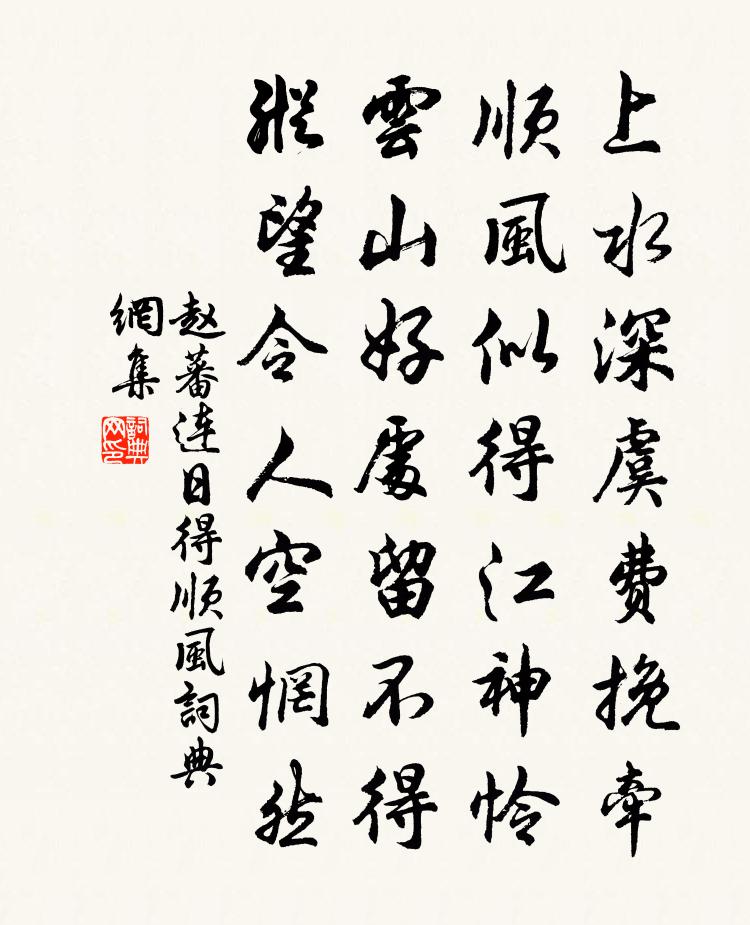 上水深虞費挽牽
順風似得江神怜
雲山好處留不得
縱望令人空惘然
赵蕃连日得順風詞典
網集
詞典
网印